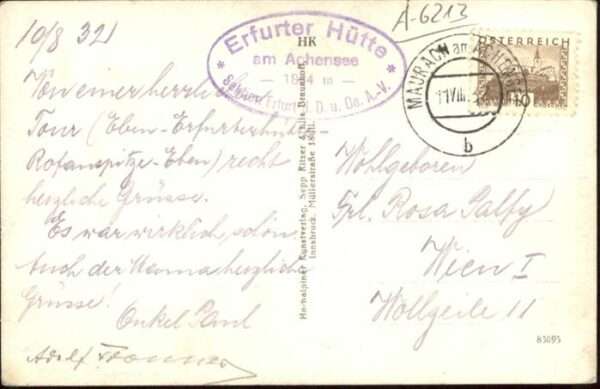 10/8 32
A-6213
Erfurter Hütte
am Achensee
1834 m
Sektion Erfurt d. D. u. Oe. A.-V.
HK
ÖSTERREICH
10
MAURACH am ACHENSEE
b
Von einer herrlichen
Tour (Eben-Erfurterhütte-
Rofanspitze-Eben) recht
herzliche Grüsse.
Es war wirklich schön
Auch der Mama herzliche
Grüsse!
Onkel Paul
Adolf
Hochalpiner Kunstverlag, Sepp Ritzer
Innsbruck, Müllerstraße
Wohlgeboren
Frl. Rosa Palffy
Wien I
Wollzeile 11
83095